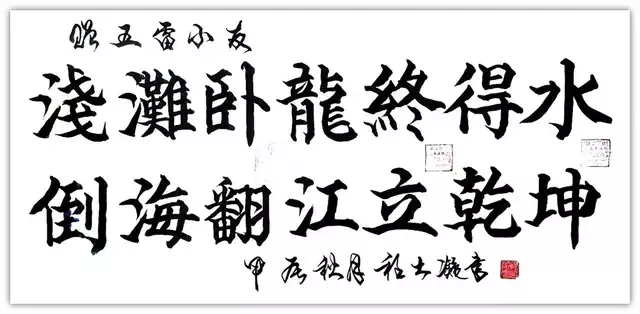 赠五雷小友
淺灘卧龍終得水
倒海翻江立乾坤
甲辰秋月程士凝書